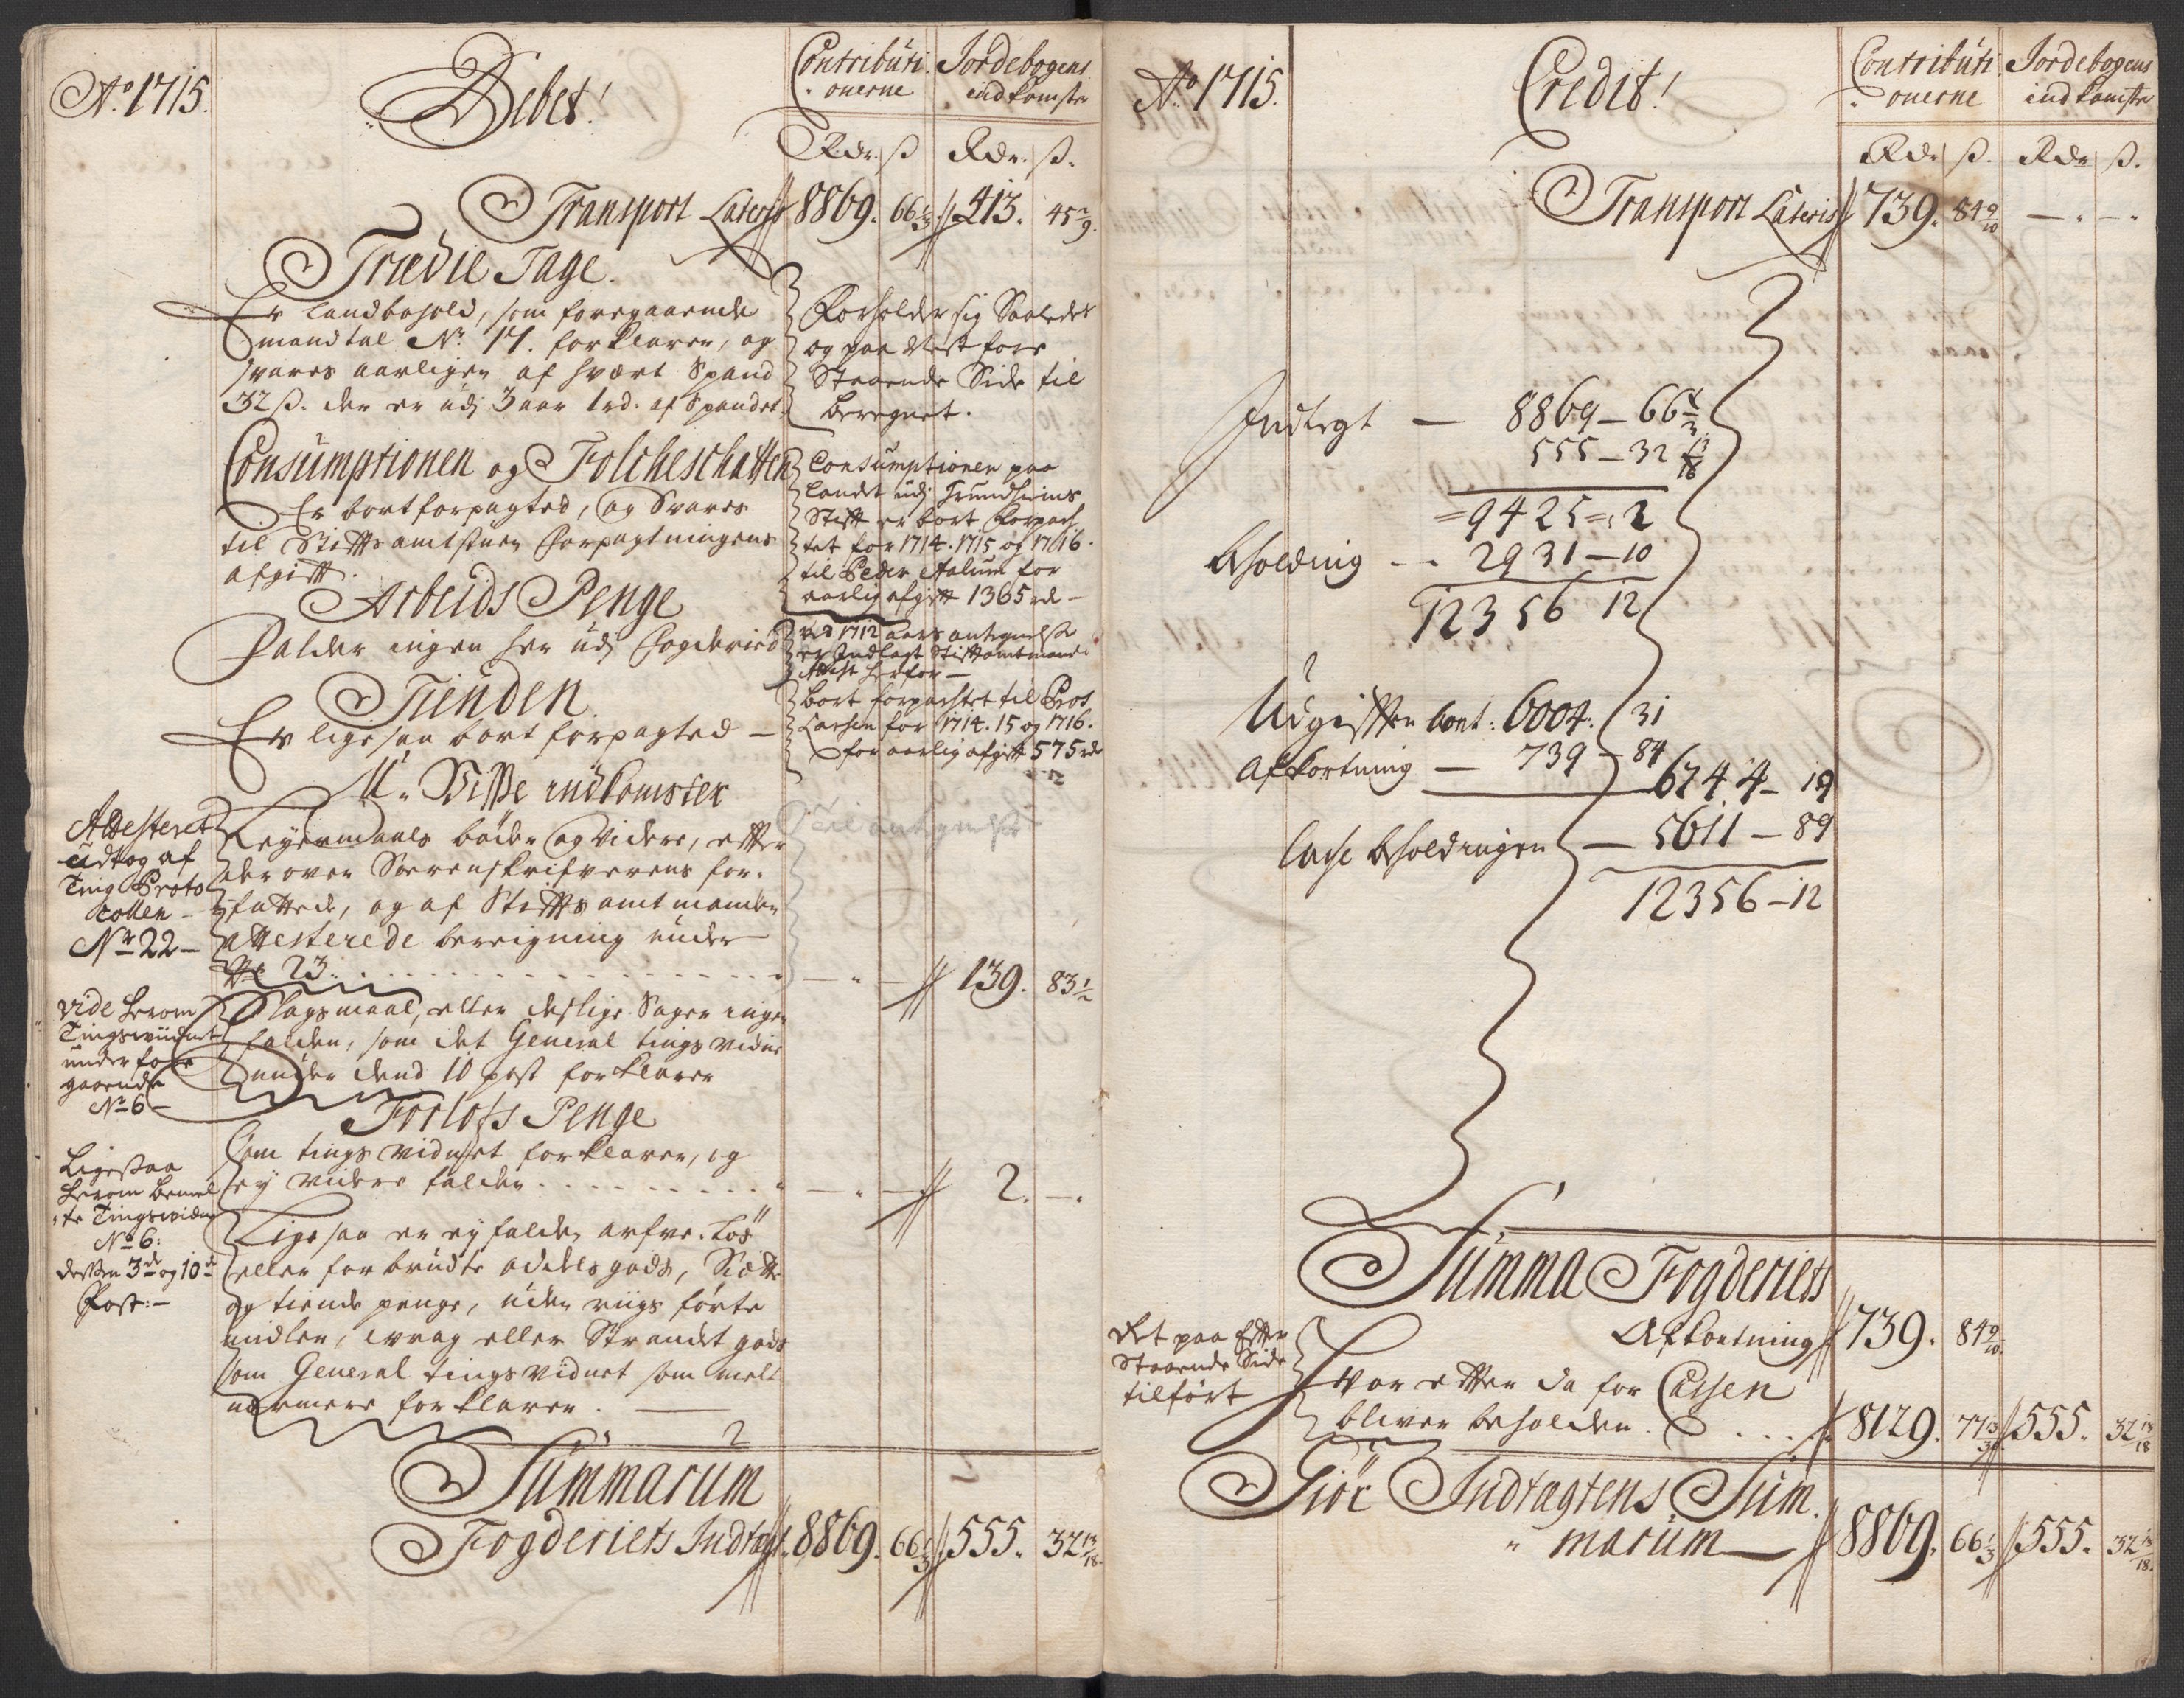 Ao. 1715.
Debet!
Contributi-
onerne
Jordebogens
indkomster
Rdr. ß Rdr. ß.
Transport Lateris 8869. 66 1/3 413. 45 2/9.
Trædie Tage.
Er landbohold, som foregaaende
mandtal No. 17. forklarer, og
svares aarligen af hvært Spand
32 ß. der er udj 3 aar 1 rd. af Spandet.
Forholder sig Saaledes
og paa Nest fore
Staaende Side til
beregnet.
Consumptionen og Folcheschatten
Er bortforpagted, og Svares
til Stiftsamtstuen Forpagtningens
afgift.
Consumptionen paa
Landet udj Trundhiems
Stift er bort Forpach
tet for 1714. 1715 og 1716.
til Peder Aalum for
aarlig afgift 1365 rd -
Arbeids Penge
Falder ingen her udj Fogderied
ved 1712 aars antegnelse
er Indlagt Stiftamtmand
Attest herfor -
Tienden
Er ligesaa bort forpagted -
bort forpachtet til
Larsen for 1714. 15 og 1716.
for aarlig afgift 575 rd
U-Visse indkomster
Attesteret
Udtog af
Ting Proto
collen -
No 22 -
Leyermaals bøder og videre, efter
den over Sorenskrifverens for-
fattede, og af Stiftsamtmanden
attesterede beregning under
No 23. - . - 139. 83 1/2
Vide herom
Tingsvidnet
under fore
gaaende
No 6 -
Slagsmaal, eller deslige Sager ingen
falden, som det General tingsvidne
under dend 10 post forklarer
Forlofs Penge
Som tingsvidnet forklarer, og
ey videre falden - . - 2. -.
Ligesaa
herom bemel
te Tingsvidne
No 6:
dessen 3de og 10de
Post: -
Ligesaa er ey falden arfve-Løs
eller forbrudte odelsgods, Siette
og tiende penge, uden rigs førte
midler, wrag eller Strandet gods
som General tingsvidnet som melt
nærmere forklarer.
Summarum
Fogderiets Indtægt 8869. 66 1/3 555. 32 13/18
Ao 1715.
Credit!
Contributi-
onerne
Jordebogens
indkomster
Rdr ß. Rdr ß.
Transport Lateris 739. 84 9/10 - . - .
Indtegt - 8869 - 66 1/3
555 - 32 13/18
9425 = 2
Beholdning - 2931 - 10
12356 12
Udgiften Cont: 6004: 31
Afkortning - 739 - 84
6744 - 19
Casse beholdningen - 5611 - 89
12356 - 12
Summa Fogderiets
Afkortning 739. 84 9/10
Det paa Efter
Staaende Side
tilført
Hvor efter da for Cassen
bliver beholden. 8129. 77 13/30 555. 32 13/18
Giør Indtægtens Sum-
marum 8869. 66 1/3 555. 32 13/18.